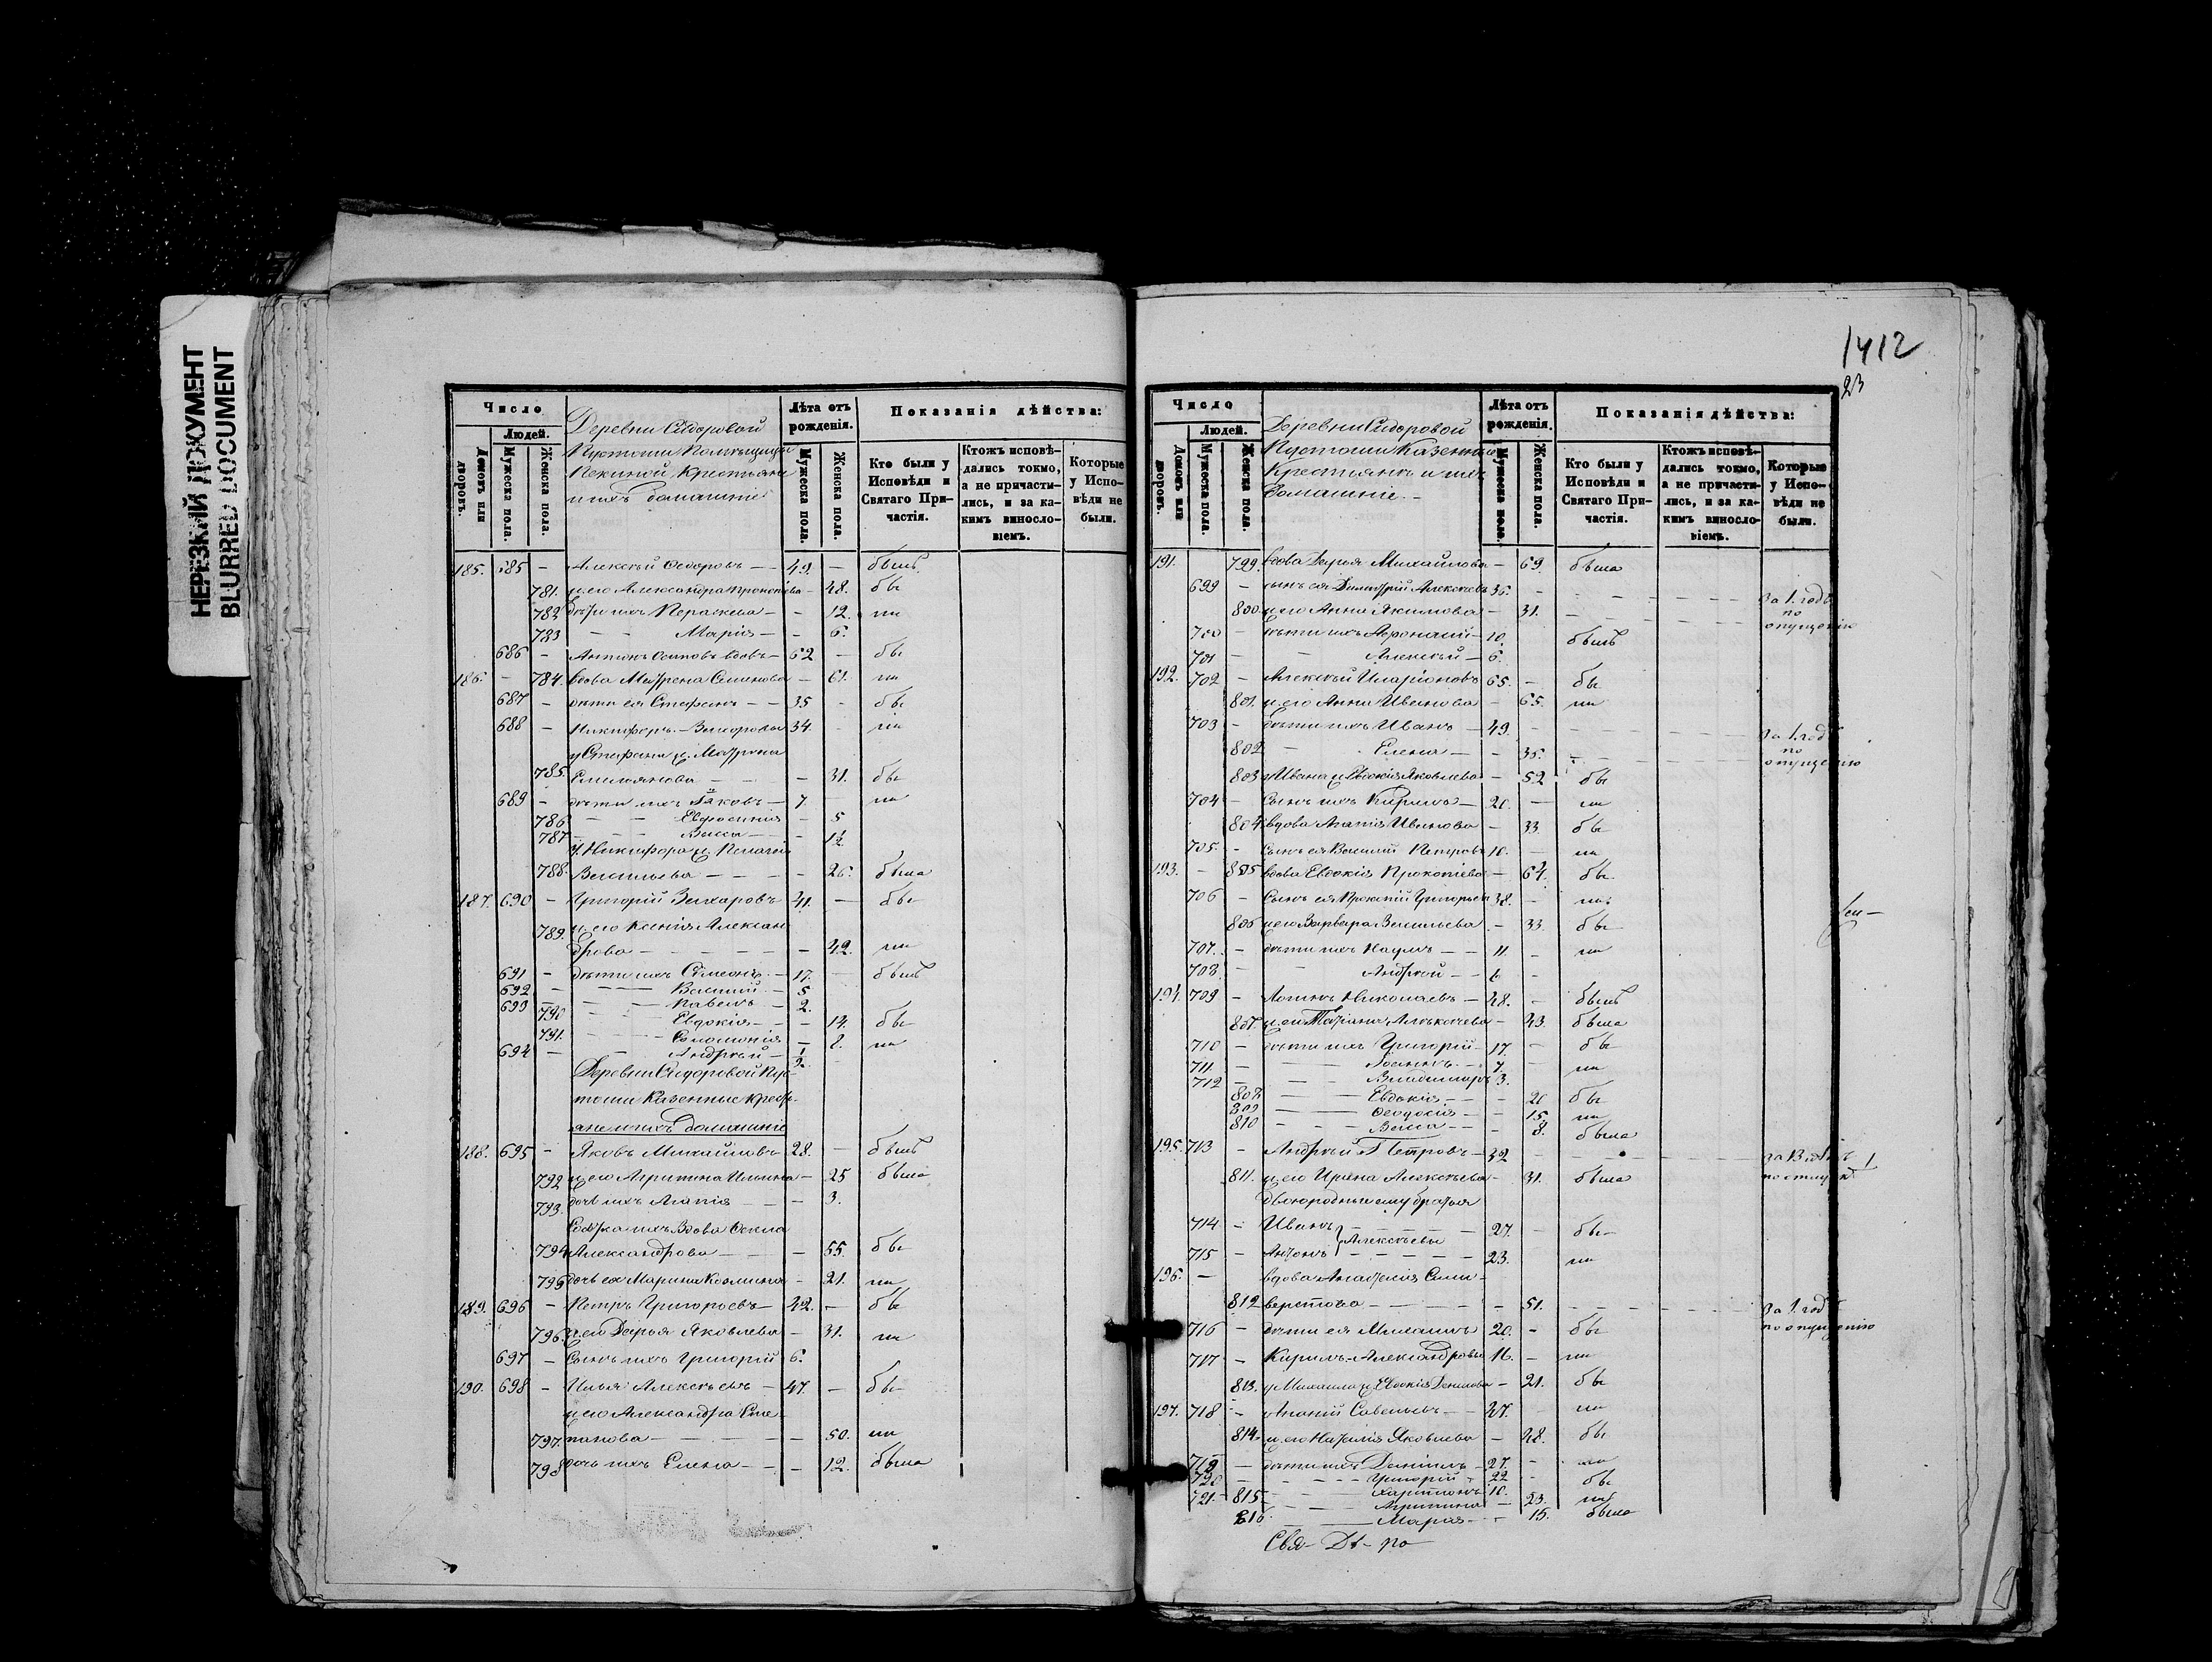 НЕРЕЗКИЙ ДОКУМЕНТ
BLURRED DOCUMENT
Число
Людей.
Домовъ или дворовъ.
Мужеска пола.
Женска пола.
Деревни Сидоровой
Пустоши
Крестьяне
и ихъ домашніе
Лѣта отъ рожденія.
Мужеска пола.
Женска пола.
Показанія дѣйства:
Кто были у Исповѣди и Святаго Причастія.
Ктожъ исповѣдались токмо, а не причастились, и за какимъ винословіемъ.
Которые у Исповѣди не были.
185. 685 – Алексѣй Ѳедоровъ – 49. – былъ
781. ж. его Александра Прокопіева – 48. бы
782 дѣти ихъ – 12. ла
783 – – Марія – – 6.
686 – Антонъ Осиповъ вдовъ – 62 – бы
186. – 784. вдова Матрена Семенова – 61. ла
687 – дѣти ея Стефанъ – – 35 – бы
688 – Никифоръ Захаровы 34. ла
у Стефана ж. Матрона
785. Емельянова – – 31. бы
689 – дѣти ихъ Іаковъ – 7. – ла
786 – – Евфросинія – 5
787 – – Васса – – 1½
у Никифора ж. Пелагія
788. Васильева – – – – 26. была
187. 690 – Григорій Захаровъ 41. – бы
789. ж. его Ксенія Алексан
дрова – – – – 42. ла
691 – дѣти ихъ Симеонъ – 17. – былъ
692 – – – Василій – 5
693 – – – Павелъ – 2.
790 – – Евдокія – – 14. бы
791. – – Соломонія – 8. ла
694 – – Андрей – ½
Деревни Сидоровой Пус-
тоши Казенные крестья-
не и ихъ домашніе
188. 695 – Яковъ Михайловъ 28. – былъ
792 ж. его Агрипина Ильина – 25 была
793. дочь ихъ Агапія – – 3.
ихъ вдова Ѳекла
794 Александрова – – – 55. бы
795 дочь ея Марина Козмина – 21. ла
189. 696 – Петръ Григорьевъ – 42. – бы
796. ж. его Дарья Яковлева – 31. ла
697 – Сынъ ихъ Григорій 6.
190. 698 – Илья Алексѣевъ – 47. – бы
ж. его Александра Сте-
797. панова – – – – 50. ла
798 дочь ихъ Елена – – – 12. была
1412
23
Число
Людей.
Домовъ или дворовъ.
Мужеска пола.
Женска пола.
Деревни Сидоровой
Пустоши Казенныхъ
Крестьянъ и ихъ
домашніе. –
Лѣта отъ рожденія.
Мужеска пола.
Женска пола.
Показанія дѣйства:
Кто были у Исповѣди и Святаго Причастія.
Ктожъ исповѣдались токмо, а не причастились, и за какимъ винословіемъ.
Которые у Исповѣди не были.
191. 799. вдова Дарья Михайлова – 69. была
699 – сынъ ея Димитрій Алексѣевъ 36. – за 1. годъ
800 ж. его Анна Якимова – 31. – по опущенію
700 – дѣти ихъ 10. былъ
701 – – Алексѣй – 6.
192. 702 – Алексѣй Иларіоновъ 65. – бы
801. ж. его Анна Иванова – 65. ла
703 – дѣти ихъ Иванъ – 49. – за 1. годъ
802 – – Елена – – 35. – по опущенію
803 у Ивана ж. Евдокія Яковлева – 52 бы
704 – Сынъ ихъ Кирилъ – 20. – ла
804. вдова Агапія Иванова – 33. бы
705. – Сынъ ея Василій Петровъ 10. – ла
193. – 805 вдова Евдокія Прокопіева – 64. бы
706 – Сынъ ея Григорьевъ 38. – ла
806 ж. его Варвара Васильева – 33. бы
707. – дѣти ихъ Наумъ – – 11. – ла
708. – – Андрей – – 6 –
194. 709 – Логинъ Николаевъ – 48. – былъ
807. ж. его Татіана Алексѣева – 43. была
710 – дѣти ихъ Григорій – 17. – бы
711 – – – Іоаннъ – – 7. ла
712 – – – Владимиръ 3.
808. – – Евдокія – – 20 бы
809 – – Ѳеодосія – – 15. ла
810 – – Васса – – 8. была
195. 713 – Андрей Петровъ – 32 –
811. ж. его Ирина Алексѣева – 31. была
двоюродные ему братья
714 – Иванъ – 27. – бы
Алексѣевы
715 – Антонъ – 23. ла
196. – вдова Анастасія Сели-
812 верстова – – – 51. – за 1. годъ
716 – дѣти ея Михаилъ 20. – бы по опущенію
717 – Кирилъ Александровы 16. – ла
813. у Михаила ж. Евдокія Данилова – 21. бы
197. 718 – Савельевъ – – 47. – ла
814. ж. его Наталія Яковлева – 48. бы
719 – дѣти ихъ Даніилъ – 27. – ла
720 – – – Григорій – 22 – бы
721. – – – Харитонъ 10. ла
815 – – Агрипина – 23.
816 – – Марія – – 15. была